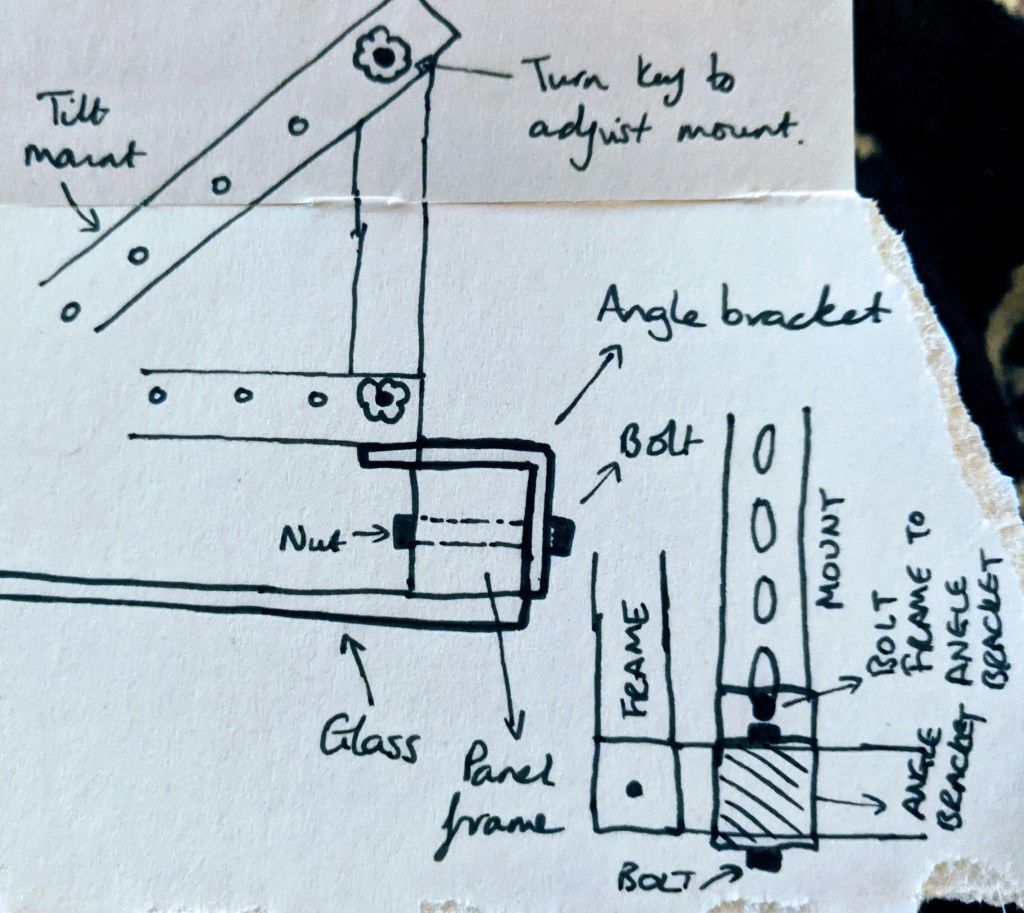 Turn key to
adjust mount.
Tilt
mount
Angle bracket
Bolt
Nut
Glass
Panel
frame
FRAME
MOUNT
BOLT
FRAME TO
ANGLE
BRACKET
ANGLE
BRACKET
BOLT